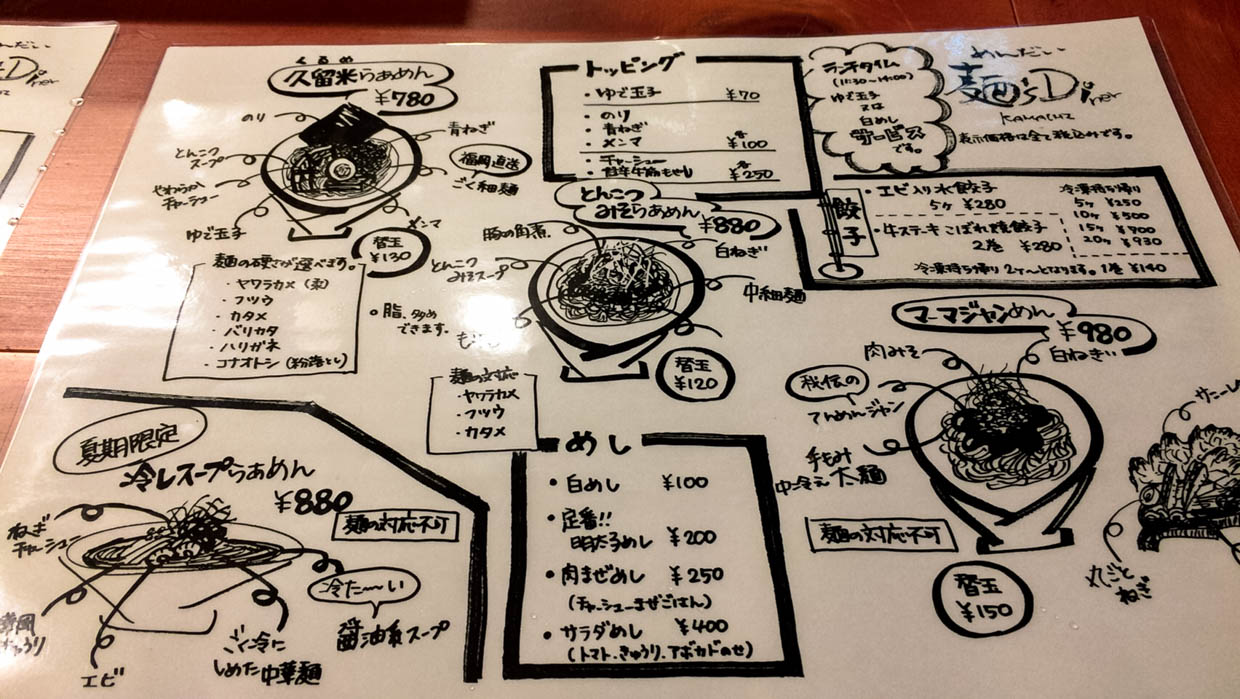 くるめ
久留米らぁめん
¥780
のり
とんこつ
スープ
やわらか
チャーシュー
ゆで玉子
青ねぎ
福岡直送
ごく細麺
メンマ
替玉
¥130
麺の硬さが選べます。
・ヤワラカメ(柔)
・フツウ
・カタメ
・バリカタ
・ハリガネ
・コナオトシ(粉落とし)
・脂、多め
できます。
トッピング
・ゆで玉子 ¥70
・のり
・青ねぎ
・メンマ 各¥100
・チャーシュー
各¥250
ランチタイム
(11:30〜14:00)
ゆで玉子
又は
白めし
です。
めんだい
麺'sDiner
KAMACHI
表示価格は全て税込みです。
とんこつ
みそらぁめん
¥880
豚の角煮
とんこつ
みそスープ
白ねぎ
中細麺
替玉
¥120
麺の対応
・ヤワラカメ
・フツウ
・カタメ
餃子
・エビ入り水餃子
5ヶ ¥280
・牛ステーキこぼれ焼餃子
2巻 ¥280
冷凍持ち帰り
5ヶ ¥250
10ヶ ¥500
15ヶ ¥700
20ヶ ¥930
冷凍持ち帰り2ヶ〜となります。1巻 ¥140
マーマジャンめん
¥980
肉みそ
白ねぎ
秘伝の
てんめんジャン
手もみ
太麺
麺の対応不可
替玉
¥150
丸ごと
ねぎ
夏期限定
冷しスープらぁめん
¥880
麺の対応不可
ねぎ
チャーシュー
エビ
ごく冷に
しめた中華麺
冷た〜い
醤油系スープ
めし
・白めし ¥100
・定番!!
明太子めし ¥200
・肉まぜめし ¥250
(チャーシューまぜごはん)
・サラダめし ¥400
(トマト、きゅうり、アボカドのせ)